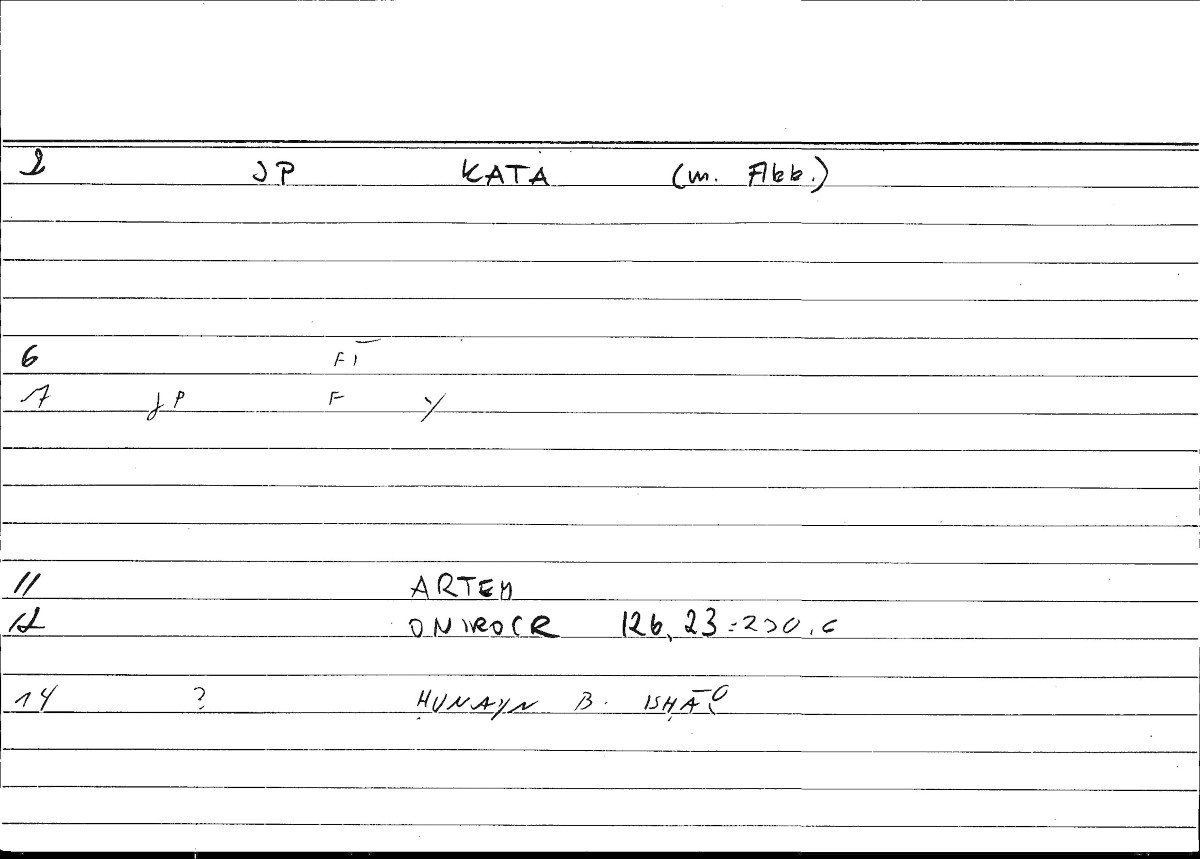 2 JP KATA (m. Abb.)
6 FĪ
7 JP F Y
11 ARTEM
12 ONIROCR 126, 23 = 230.6
14 ? ḤUNAYN B. ISḤĀQ